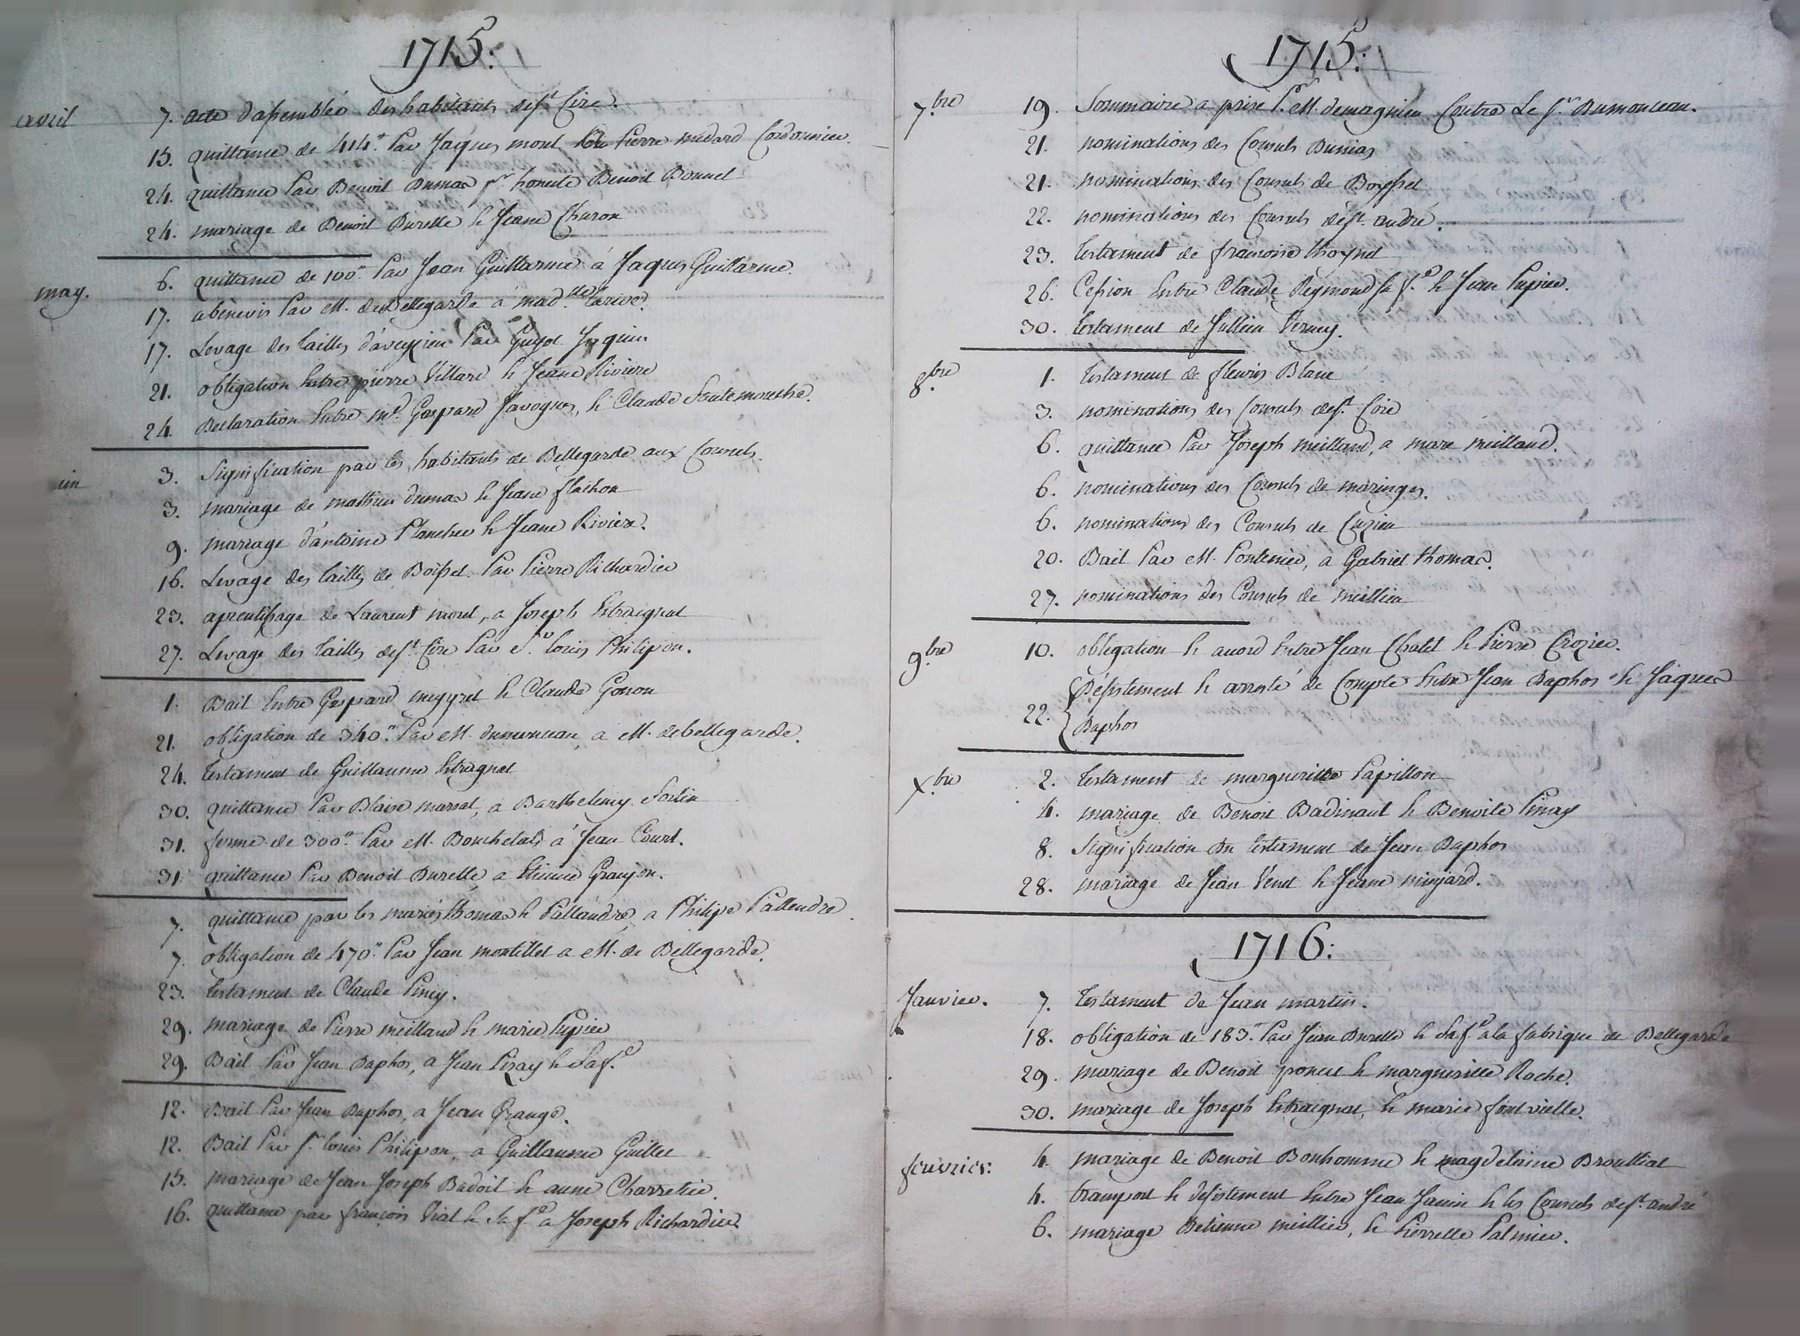 1715:
avril 7. acte d'assemblée des habitants de st Cire.
15. quittance de 414.# Par Jaques mont Pierre medard Cordonnier
24. quittance Par Benoit Dumas pr honneste Benoit Bonnet
24. mariage de Benoit Burelle & Jeane Charon
may. 6. quittance de 100.# Par Jean Guillarme à Jaques Guillarme.
17. abénevis Par M. de Bellegarde à madlle Larive.
17. Levage des tailles d'aveyzieu Par Guyot Jaquin
21. obligation Entre pierre Villard & Jeane Riviere
24. Declaration Entre mr. Gaspard Javogues, & Claude Soutemouche.
uin 3. Signification par les habitants de Bellegarde aux Consuls.
3. mariage de mathieu dumas & Jeane flachon
9. mariage d'antoine Planchu & Jeane Riviere.
16. Levage des tailles de Boisset Par Pierre Richardier
23. aprentissage de Laurent mont, a Joseph Estraignat
27. Levage des tailles de st Cire Par Sr. Louis Philipon.
1. Bail Entre Gaspard meyret & Claude Gonon
21. obligation de 340.# Par M. dumonceau a M. de bellegarde.
24. testament de Guillaume Estragnat
30. quittance Par Blaise marsal, a Barthelemy Fortin
31. ferme de 300.# Par M. Bouchetald à Jean Court.
31. quittance Par Benoit Burelle a Etienne Granjon.
7. quittance par les mariés thomas & Pallandre, a Philipe Pallendre
7. obligation de 470.# Par Jean montillet a M. de Bellegarde.
23. testament de Claude Piney.
29. mariage de Pierre meilland & marie Pupier
29. Bail Par Jean Baphos, a Jean Piray & Sa fe
12. Bail Par Jean Baphos, a Jean Grange.
12. Bail Par Sr. Louis Philipon, à Guillaume Guillet
15. mariage de Jean Joseph Badoit & anne Charretier.
16. quittance par françois Vial & Sa fe a Joseph Richardier.
1715:
7.bre 19. Sommaire a prise Pr M. demagnieu Contre Le Sr. Dumonceau.
21. nominations des Consuls Dunias
21. nominations des Consuls de Boisset
22. nominations des Consuls de st. andré.
23. testament de francoise thoynet
26. Cession Entre Claude Reymond sa fe. & Jean Pupier.
30. testament de Jullien Verney.
8.bre 1. testament de fleurie Blanc
3. nominations des Consuls de st Cire
6. quittance Par Joseph meilland, a marc meilland.
6. nominations des Consuls de maringes.
6. nominations des Consuls de Cuzieu
20. Bail Par M. Pontenier, a Gabriel thomas.
27. nominations des Consuls de meillieu
9.bre 10. obligation & accord Entre Jean Chatel & Pierre Crozier.
22. { Désistement & arresté de Compte Entre Jean Baphos & Jaques
Baphos
X.bre 2. testament de marguerite Papillon
4. mariage de Benoit Badinaut & Benoite Pinay
8. Signification du testament de Jean Baphos
28. mariage de Jean Venet & Jeane minjard.
1716:
Janvier. 7. testament de Jean martin.
18. obligation de 183.# Par Jean Burelle & sa fe a la fabrique de Bellegarde
29. mariage de Benoit poncet & marguerite Roche.
30. mariage de Joseph Estraignat, & marie fontvielle.
feuvrier: 4. mariage de Benoit Bonhomme & magdelaine Broulliat
4. transport & desistement Entre Jean Janin & les Consuls de st. andré
6. mariage Detienne meillier, & Pierrette Palmier.